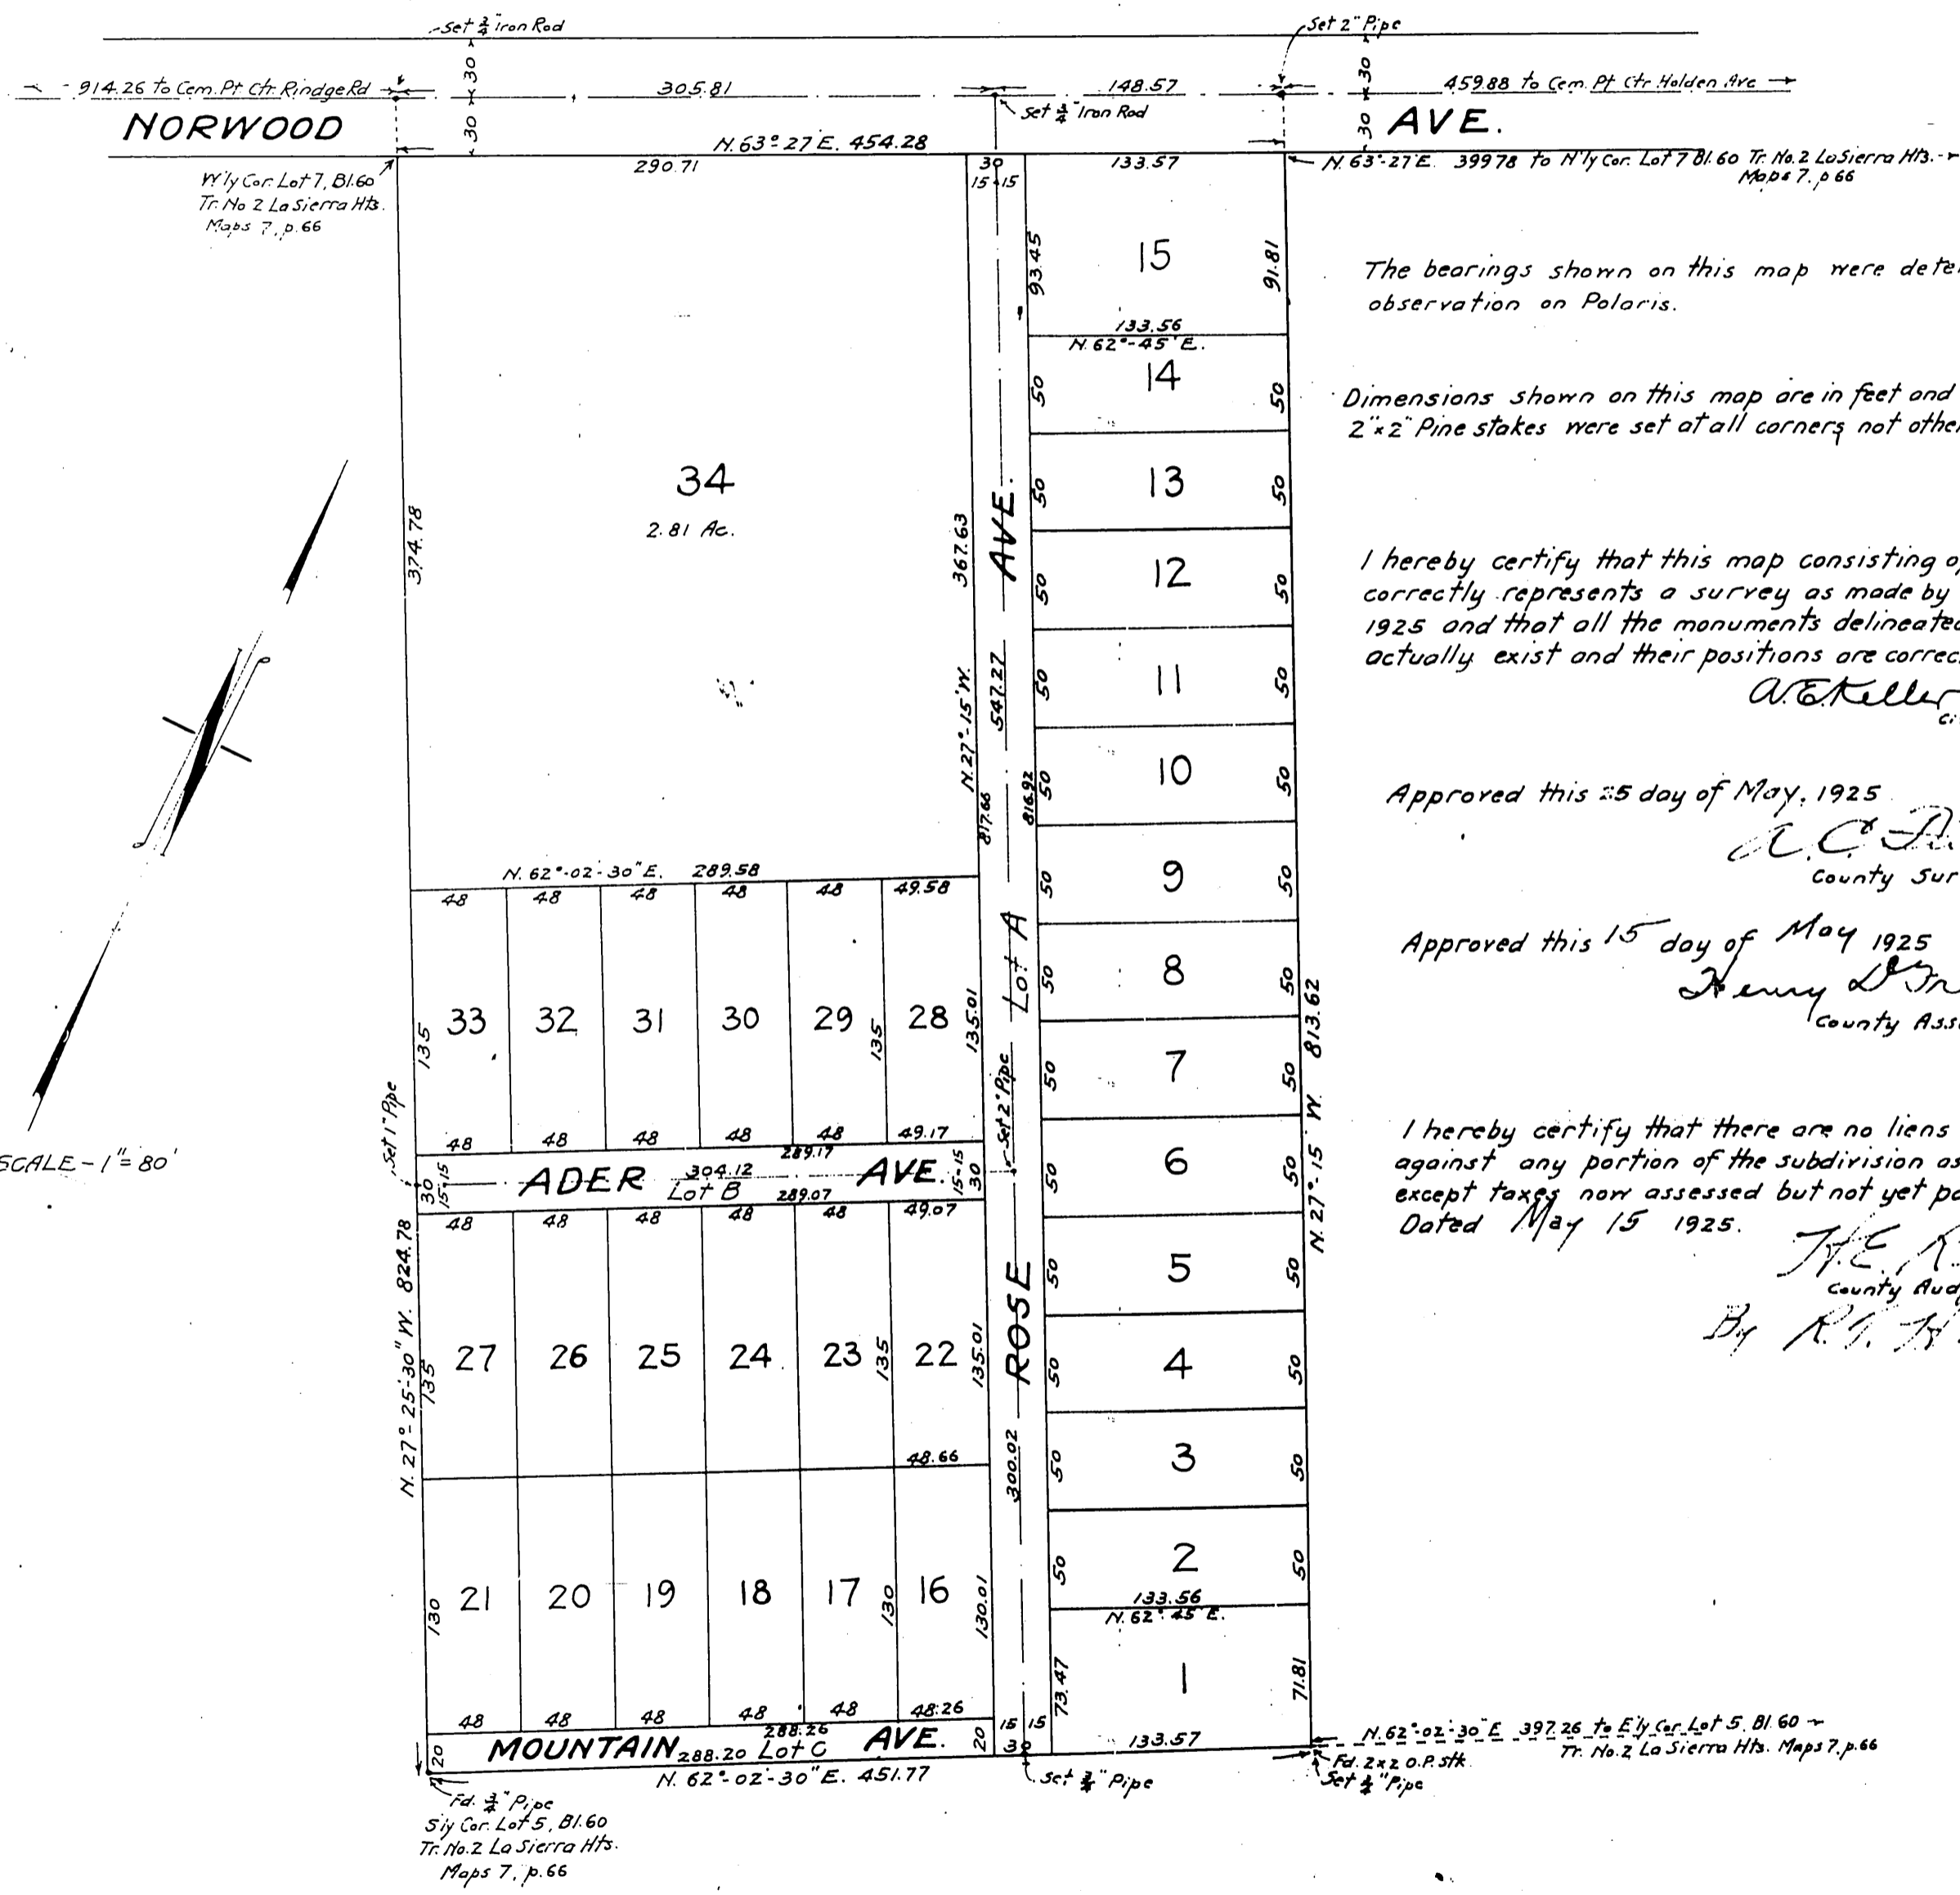 Set 3/4" Iron Rod
Set 2" Pipe
914.26 to Cem. Pt. Ctr. Rindge Rd
30
305.81
148.57
30
459.88 to Cem. Pt Ctr Holden Ave
Set 3/4" Iron Rod
NORWOOD
30
30
AVE.
N. 63°-27' E. 454.28
290.71
30
133.57
N. 63°-27' E. 399.78 to N'ly Cor. Lot 7 Bl. 60 Tr. No. 2 La Sierra Hts.
Maps 7. p 66
15 15
W'ly Cor. Lot 7, Bl. 60
Tr. No 2 La Sierra Hts.
Maps 7, p. 66
93.45
15
91.81
133.56
N. 62°-45' E.
50
14
50
50
13
50
50
12
50
50
11
50
50
10
50
50
9
50
50
8
50
50
7
50
50
6
50
50
5
50
50
4
50
50
3
50
50
2
50
133.56
N. 62°-45' E.
73.47
1
71.81
133.57
N. 27°-15' W. 813.62
34
2.81 Ac.
374.78
367.63
N. 27°-15' W.
817.66
816.92
547.27
AVE.
Lot A
Set 2" Pipe
ROSE
300.02
N. 62°-02'-30" E. 289.58
48 48 48 48 48 49.58
135
33 32 31 30 29
135
28
135.01
48 48 48 48 48 49.17
289.17
Set 1" Pipe
30
15-15
ADER
304.12
Lot B
AVE.
15-15
30
289.07
48 48 48 48 48 49.07
N. 27°-25'-30" W. 824.78
135
27 26 25 24 23
135
22
135.01
48.66
130
21 20 19 18 17
130
16
130.01
48 48 48 48 48 48.26
288.26
20
MOUNTAIN
288.20 Lot C
AVE.
20
15 15
30
N. 62°-02'-30" E. 451.77
Set 3/4" Pipe
Fd. 3/4" Pipe
S'ly Cor. Lot 5, Bl. 60
Tr. No. 2 La Sierra Hts.
Maps 7, p. 66
N. 62°-02'-30" E 397.26 to E'ly Cor. Lot 5. Bl. 60
Tr. No. 2 La Sierra Hts. Maps 7. p. 66
Fd. 2x2 O.P. stk.
Set 3/4" Pipe
SCALE - 1" = 80'
The bearings shown on this map were dete
observation on Polaris.
Dimensions shown on this map are in feet and
2"x2" Pine stakes were set at all corners not othe
I hereby certify that this map consisting o
correctly represents a survey as made by
1925 and that all the monuments delineated
actually exist and their positions are correc
A.E. Keller
Ci
Approved this 25 day of May, 1925
A. C.
County Sur
Approved this 15 day of May 1925
Henry
County Ass
I hereby certify that there are no liens
against any portion of the subdivision as
except taxes now assessed but not yet pa
Dated May 15 1925.
County Aud
By R.